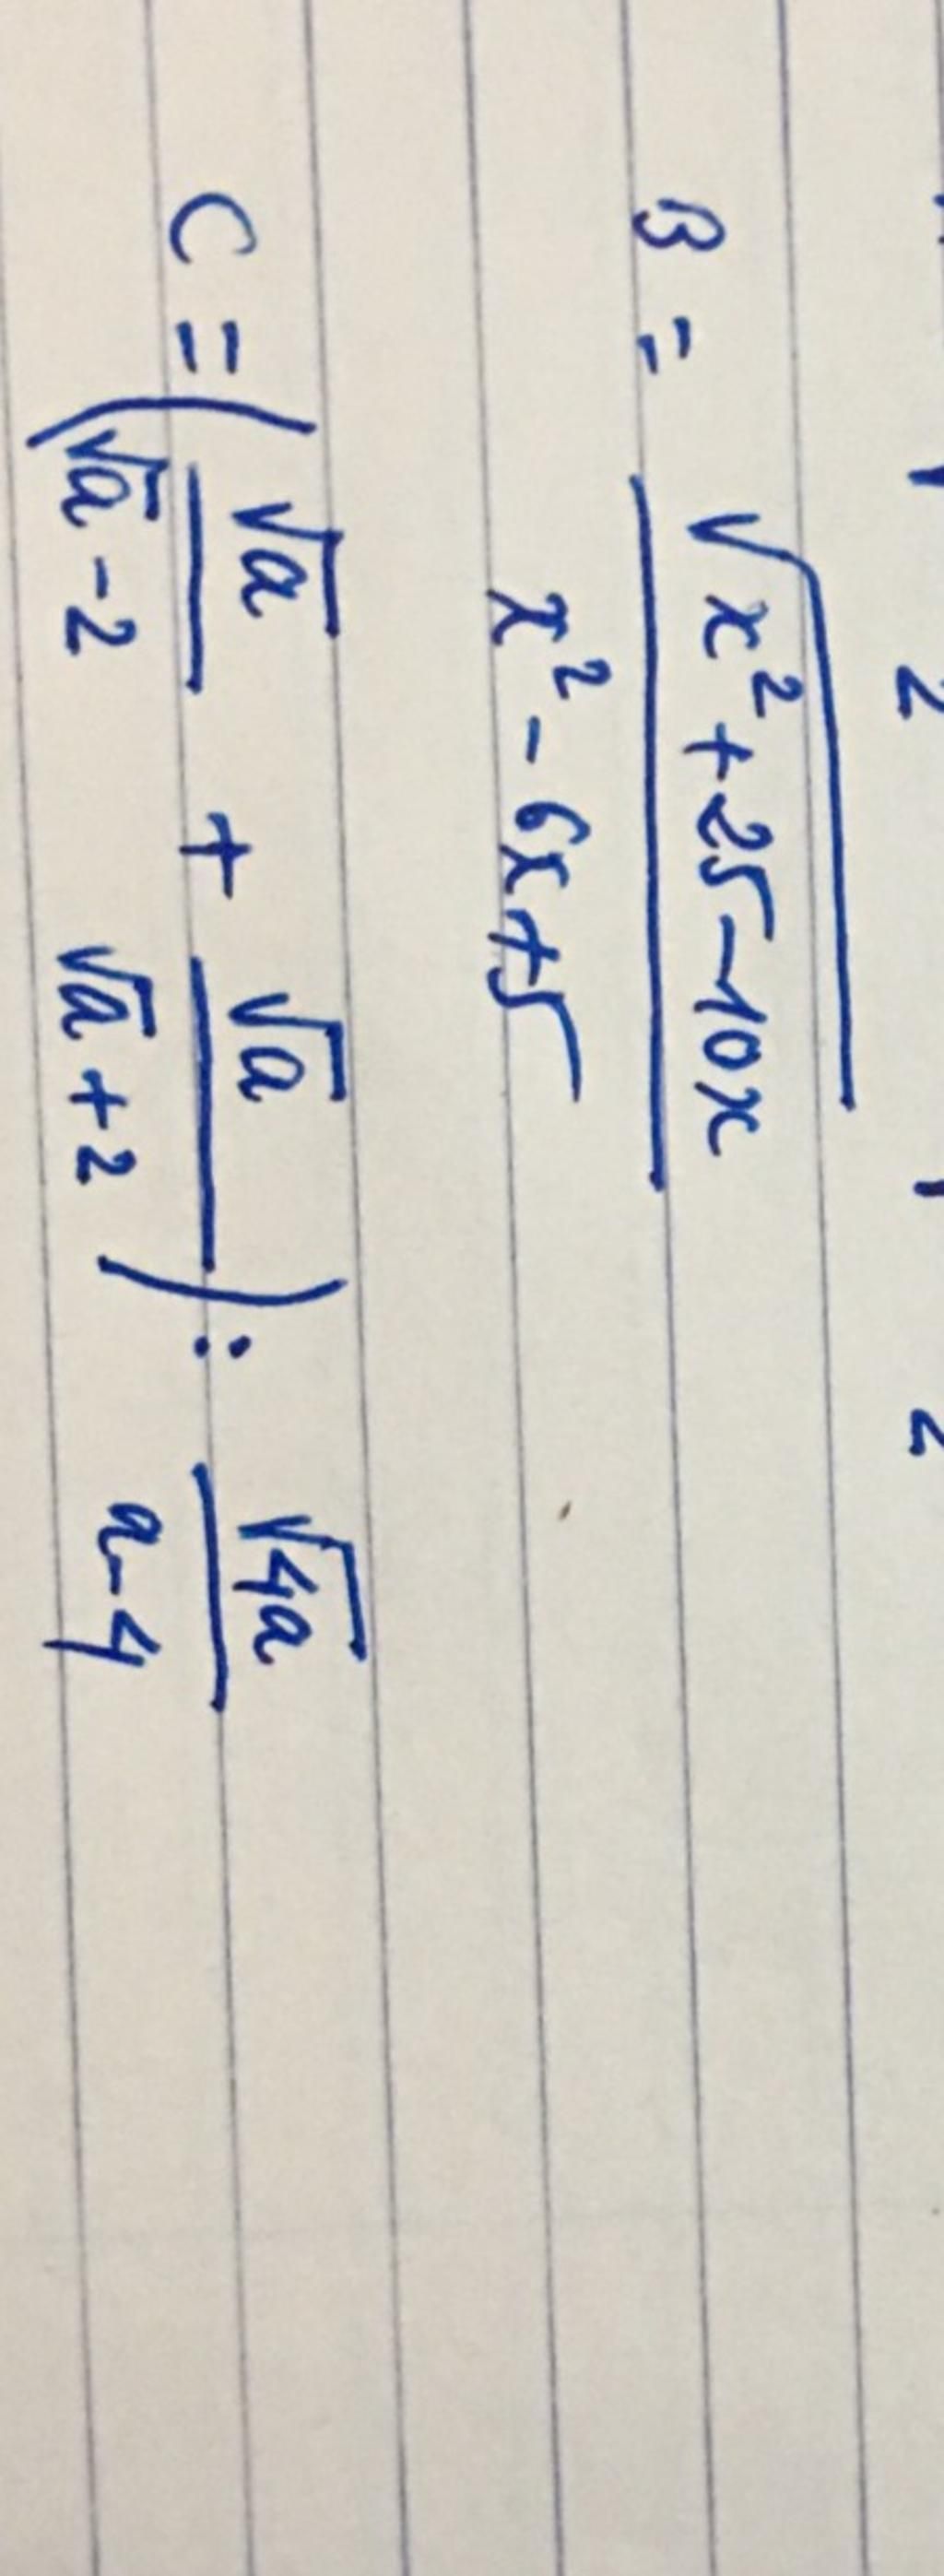 B = √(x² + 25 - 10x) / (x² - 6x + 5)
C = (√a / (√a - 2) + √a / (√a + 2)) : √4a / (a - 4)